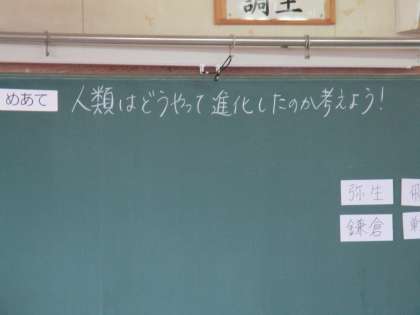 めあて
人類はどうやって進化したのか考えよう!
弥生
鎌倉